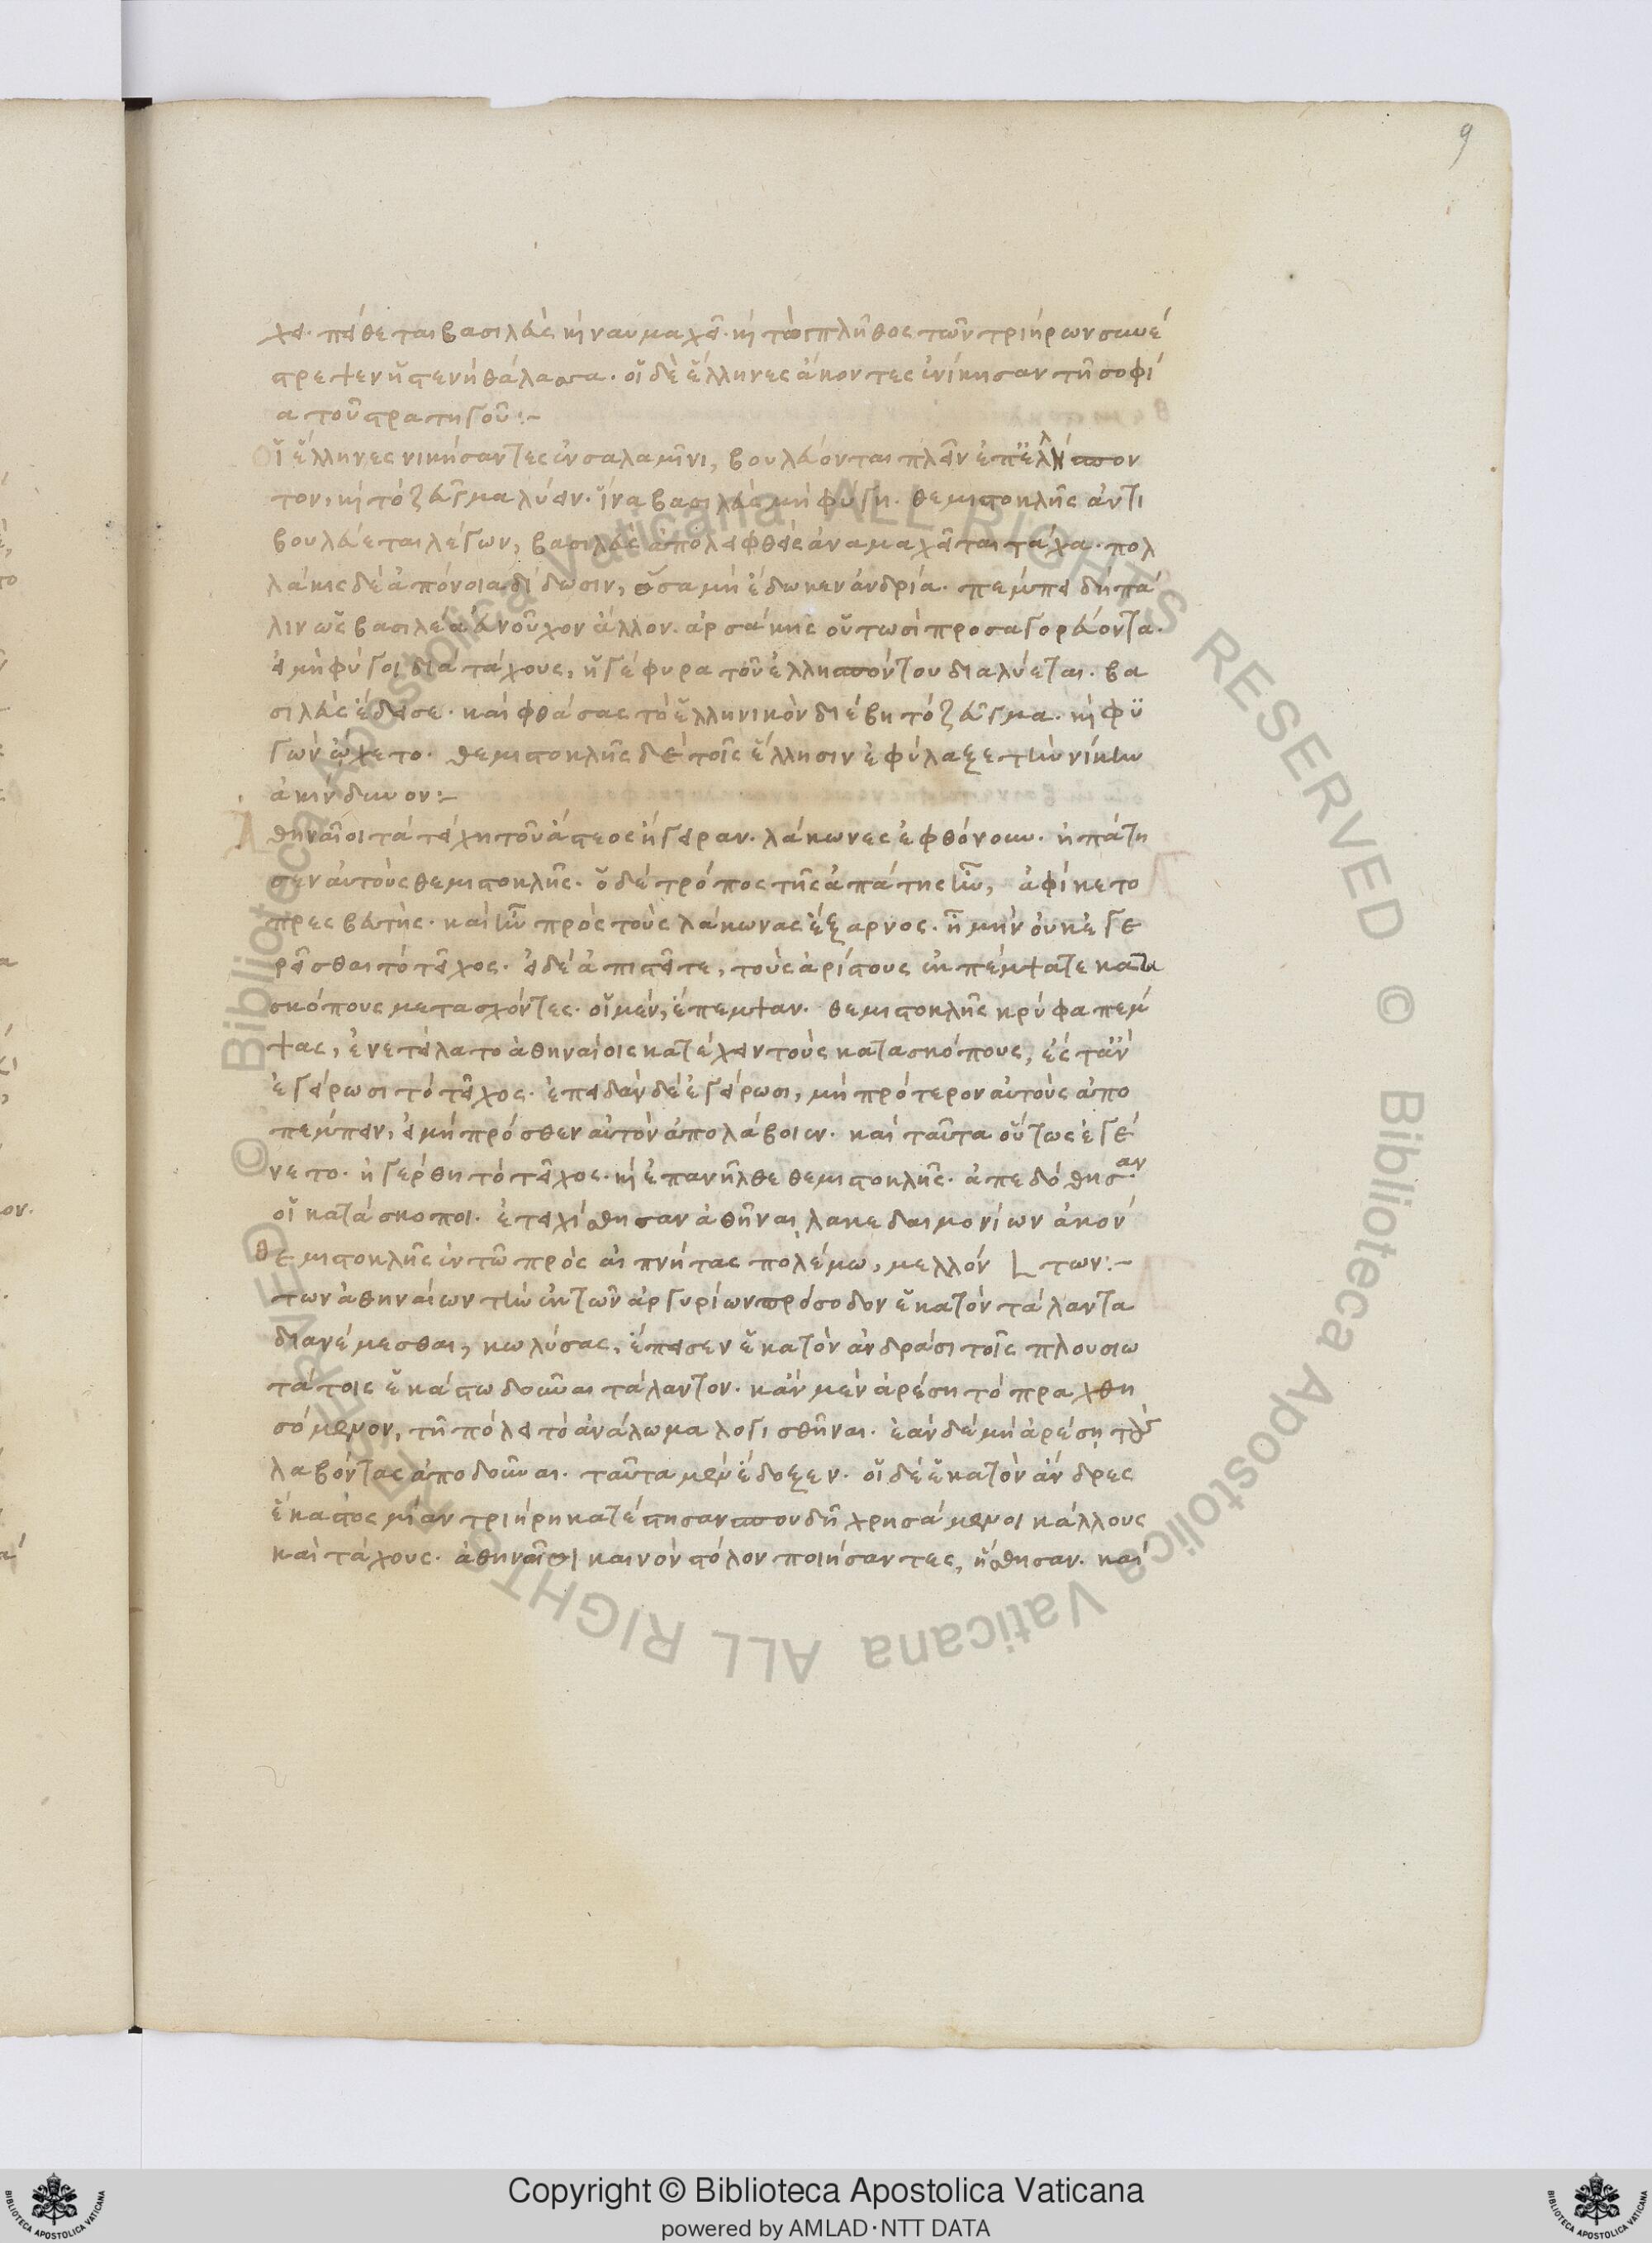 9
χει. πείθεται βασιλεὺς καὶ ναυμαχεῖ. καὶ τὸ πλῆθος τῶν τριήρων συνέ
στρεψεν ἡ στενὴ θάλασσα. οἱ δὲ ἕλληνες ἄκοντες ἐνίκησαν τῇ σοφί
α τοῦ στρατηγοῦ:-
Οἱ ἕλληνες νικήσαντες ἐν σαλαμῖνι, βουλεύονται πλεῖν ἐπ' ἑλλήσπον
τον, καὶ τὸ ζεῦγμα λύειν. ἵνα βασιλεὺς μὴ φύγη. θεμιστοκλῆς ἀντι
βουλεύεται λέγων, βασιλεὺς ἀπολειφθεὶς ἀναμαχεῖται τάχα. πολ
λάκις δὲ ἀπόνοια δίδωσιν, ὅσα μὴ ἔδωκεν ἀνδρία. πέμπει δὴ πά
λιν ὡς βασιλέα εὐνοῦχον ἄλλον. ἀρσάκης οὕτωσὶ προσαγορεύοντα.
εἰ μὴ φύγοι διὰ τάχους, ἡ γέφυρα τοῦ ἑλλησπόντου διαλύεται. βα
σιλεὺς ἔδεισε. καὶ φθάσας τὸ ἑλληνικὸν διέβη τὸ ζεῦγμα. καὶ φυ
γὼν ᾤχετο. θεμιστοκλῆς δὲ τοῖς ἕλλησιν ἐφύλαξε τὴν νίκην
ἀκίνδυνον:-
Ἀθηναῖοι τὰ τείχη τοῦ ἄστεος ἤγειραν. λάκωνες ἐφθόνουν. ἠπάτη
σεν αὐτοὺς θεμιστοκλῆς. ὁ δὲ τρόπος τῆς ἀπάτης ἦν, ἀφίκετο
πρεσβευτής. καὶ ἦν πρὸς τοὺς λάκωνας ἔξαρνος. ἦ μὴν οὐκ ἐγε
ρεῖσθαι τὸ τεῖχος. εἰ δὲ ἀπιστεῖτε, τοὺς ἀρίστους ἐκπέμψατε κατα
σκόπους μετασχόντες. οἱ μὲν, ἔπεμψαν. θεμιστοκλῆς κρύφα πέμ
ψας, ἐνετείλατο ἀθηναίοις κατέχειν τοὺς κατασκόπους, ἔς τ' ἂν
ἐγείρωσι τὸ τεῖχος. ἐπειδὰν δὲ ἐγείρωσι, μὴ πρότερον αὐτοὺς ἀπο
πέμπειν, εἰ μὴ πρόσθεν αὐτὸν ἀπολάβοιεν. καὶ ταῦτα οὕτως ἐγέ
νετο. ἠγέρθη τὸ τεῖχος. καὶ ἐπανῆλθε θεμιστοκλῆς. ἀπεδόθησαν
οἱ κατάσκοποι. ἐτειχίσθησαν ἀθῆναι λακεδαιμονίων ἀκόν
θεμιστοκλῆς ἐν τῷ πρὸς αἰγινήτας πολέμω, μελλόν των:-
των ἀθηναίων τὴν ἐκ τῶν ἀργυρίων πρόσοδον ἑκατὸν τάλαντα
διανέμεσθαι, κωλύσας, ἔπεισεν ἑκατὸν ἀνδράσι τοῖς πλουσιω
τάτοις ἑκάστω δοῦναι τάλαντον. κἂν μὲν ἀρέση τὸ πραχθη
σόμενον, τῇ πόλει τὸ ἀνάλωμα λογισθῆναι. ἐὰν δὲ μὴ ἀρέση τοὺς
λαβόντας ἀποδοῦναι. ταῦτα μὲν ἔδοξεν. οἱ δὲ ἑκατὸν ἄνδρες
ἕκαστος μίαν τριήρη κατέστησαν σπουδῇ χρησάμενοι κάλλους
καὶ τάχους. ἀθηναῖοι καινὸν στόλον ποιήσαντες, ἥσθησαν. καὶ
© Biblioteca Apostolica Vaticana ALL RIGHTS RESERVED © Biblioteca Apostolica Vaticana ALL RIGHTS RESERVED
Copyright © Biblioteca Apostolica Vaticana
powered by AMLAD·NTT DATA
BIBLIOTECA APOSTOLICA VATICANA
BIBLIOTECA APOSTOLICA VATICANA